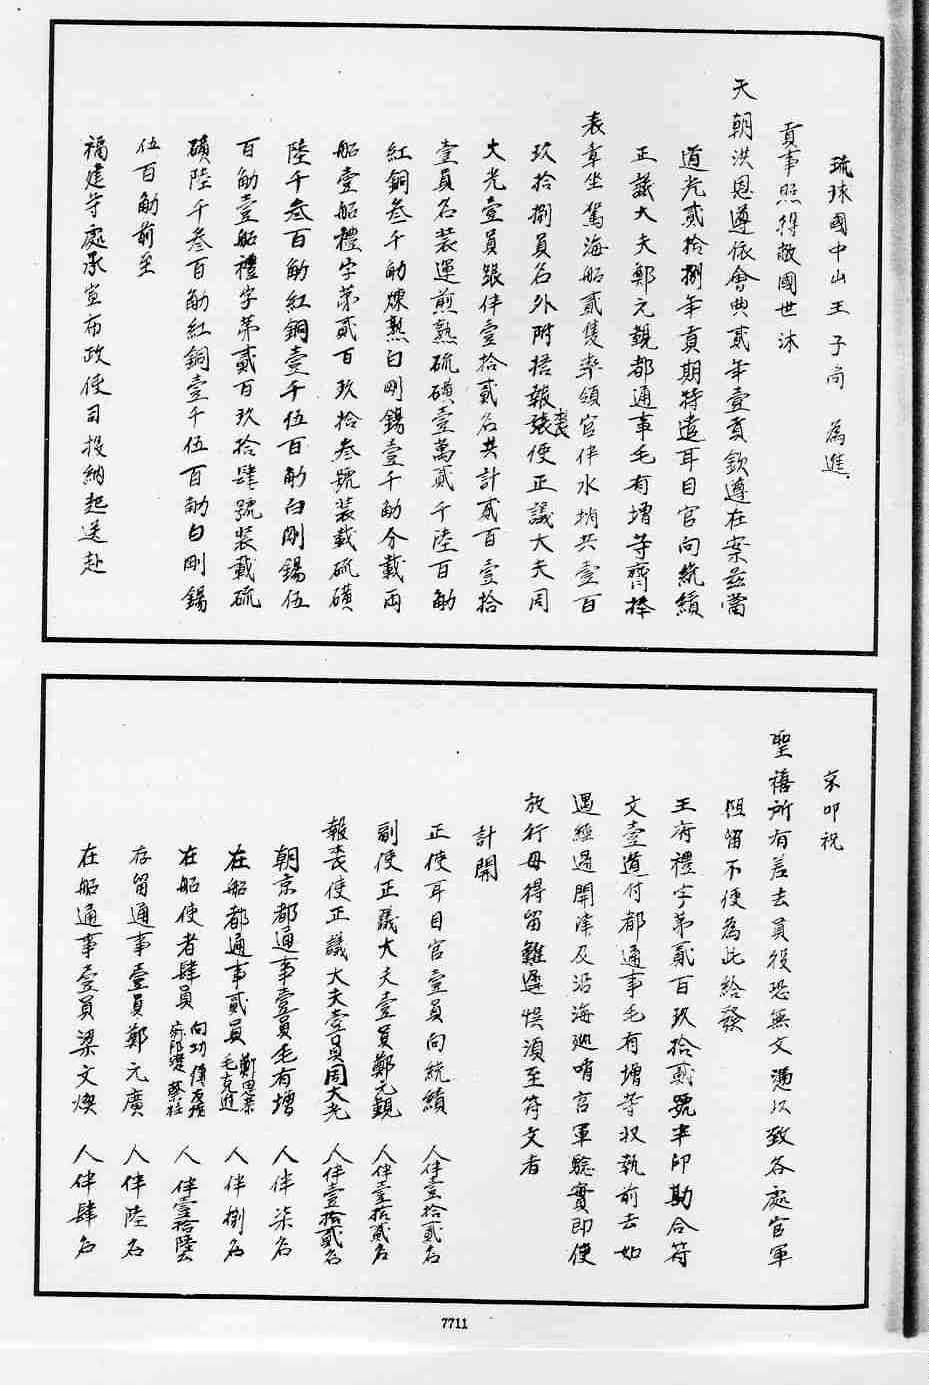 琉球國中山王子尚　為進
貢事照得敝國世沐
天朝洪恩遵依會典貳年壹貢欽遵在案茲當
道光貳拾捌年貢期特遣耳目官向統績
正議大夫鄭元覲都通事毛有增等齊捧
表章坐駕海船貳隻率領官伴水梢共壹百
玖拾捌員名外附搭報喪使正議大夫周
大光壹員跟伴壹拾貳名共計貳百壹拾
壹員名裝運煎熟硫磺壹萬貳千陸百觔
紅銅叁千觔煉熟白剛錫壹千觔分載両
船壹船禮字第貳百玖拾叁號裝載硫磺
陸千叁百觔紅銅壹千伍百觔白剛錫伍
百觔壹船禮字第貳百玖拾肆號裝載硫
磺陸千叁百觔紅銅壹千伍百觔白剛錫
伍百觔前至
福建等處承宣布政使司投納起送赴
京叩祝
聖禧所有差去員役恐無文憑以致各處官軍
阻留不便為此給發
王府禮字第貳百玖拾貳號半印勘合符
文壹道付都通事毛有增等收執前去如
遇經過關津及沿海巡哨官軍驗實即便
放行毋得留難遲悞須至符文者
計開
正使耳目官壹員向統績　人伴壹拾貳名
副使正議大夫壹員鄭元覲　人伴壹拾貳名
報喪使正議大夫壹員周大光　人伴壹拾貳名
朝京都通事壹員毛有增　人伴柒名
在船都通事貳員　毛克進　人伴捌名
在船使者肆員　向功　人伴壹拾陸名
存留通事壹員鄭元廣　人伴陸名
在船通事壹員梁文煥　人伴肆名
7711